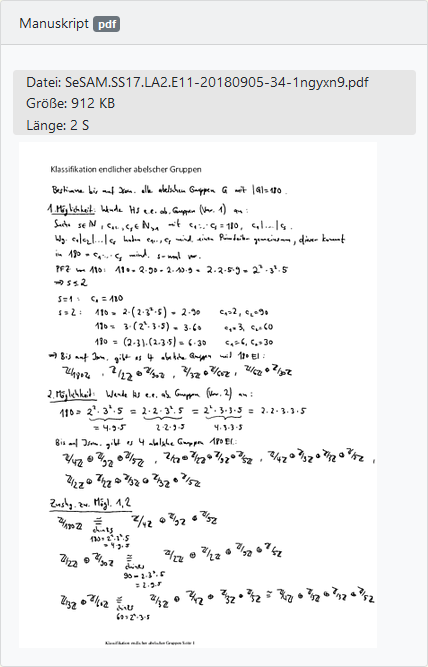 Manuskript pdf
Datei: SeSAM.SS17.LA2.E11-20180905-34-1ngyxn9.pdf
Größe: 912 KB
Länge: 2 S
Klassifikation endlicher abelscher Gruppen
Bestimme bis auf Isom. alle abelschen Gruppen G mit |G|=180.
1. Möglichkeit: Wende HS e.e. ab. Gruppen (Ver. 1) an:
Suche s∈ℕ, c₁,..,cₛ∈ℕ>1 mit c₁·...·cₛ=180, c₁|...|cₛ.
Wg. c₁|c₂|...|cₛ haben c₁,..,cₛ mind. einen Primteiler gemeinsam, dieser kommt
in 180 = c₁·...·cₛ mind. s-mal vor.
PFZ von 180: 180 = 2·90 = 2·10·9 = 2·2·5·9 = 2²·3²·5
⇒ s≤2
s=1: c₁=180
s=2: 180 = 2·(2·3²·5) = 2·90 c₁=2, c₂=90
180 = 3·(2²·3·5) = 3·60 c₁=3, c₂=60
180 = (2·3)·(2·3·5) = 6·30 c₁=6, c₂=30
⇒ Bis auf Isom. gibt es 4 abelsche Gruppen mit 180 El:
ℤ/180ℤ, ℤ/2ℤ ⊕ ℤ/90ℤ, ℤ/3ℤ ⊕ ℤ/60ℤ, ℤ/6ℤ ⊕ ℤ/30ℤ
2. Möglichkeit: Wende HS e.e. ab. Gruppen (Ver. 2) an:
180 = 2²·3²·5 = 2·2·3²·5 = 2²·3·3·5 = 2·2·3·3·5
=4·9·5 2·2·9·5 4·3·3·5
Bis auf Isom. gibt es 4 abelsche Gruppen 180 El:
ℤ/4ℤ ⊕ ℤ/9ℤ ⊕ ℤ/5ℤ, ℤ/2ℤ ⊕ ℤ/2ℤ ⊕ ℤ/9ℤ ⊕ ℤ/5ℤ, ℤ/4ℤ ⊕ ℤ/3ℤ ⊕ ℤ/3ℤ ⊕ ℤ/5ℤ,
ℤ/2ℤ ⊕ ℤ/2ℤ ⊕ ℤ/3ℤ ⊕ ℤ/3ℤ ⊕ ℤ/5ℤ
Zushg. zw. Mögl. 1,2
ℤ/180ℤ ≅ ℤ/4ℤ ⊕ ℤ/9ℤ ⊕ ℤ/5ℤ
180=2²·3²·5
=4·9·5
ℤ/2ℤ ⊕ ℤ/90ℤ ≅ ℤ/2ℤ ⊕ ℤ/2ℤ ⊕ ℤ/9ℤ ⊕ ℤ/5ℤ
90=2·3²·5
=2·9·5
ℤ/3ℤ ⊕ ℤ/60ℤ ≅ ℤ/3ℤ ⊕ ℤ/4ℤ ⊕ ℤ/3ℤ ⊕ ℤ/5ℤ ≅ ℤ/4ℤ ⊕ ℤ/3ℤ ⊕ ℤ/3ℤ ⊕ ℤ/5ℤ
60=2²·3·5
Klassifikation endlicher abelscher Gruppen Seite 1